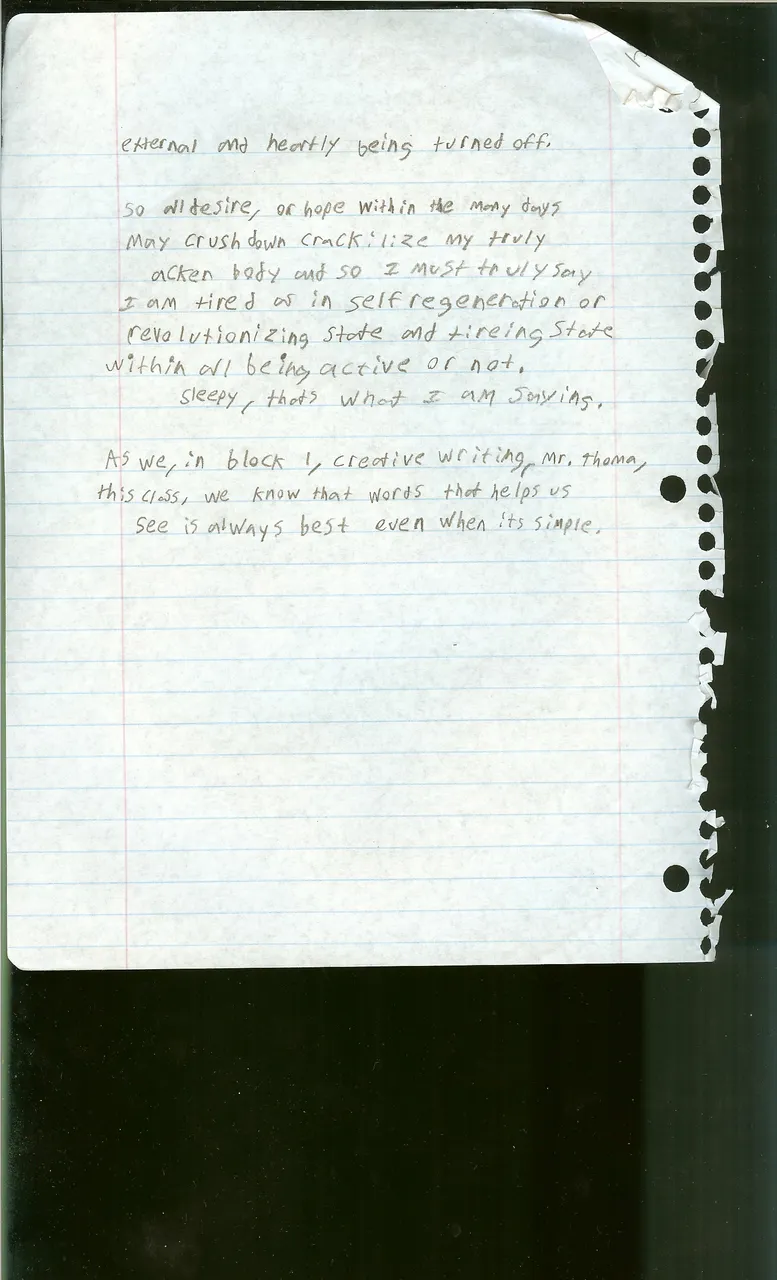 external and heartly being turned off.
So all desire, or hope within the many days
may crush down crackilize my truly
acken body and so I must truly say
I am tired as in self regeneration or
revolutionizing state and tireing state
within all being active or not.
Sleepy, thats what I am saying.
As we, in block 1, creative writing, Mr. Thoma,
this class, we know that words that helps us
see is always best even when its simple.